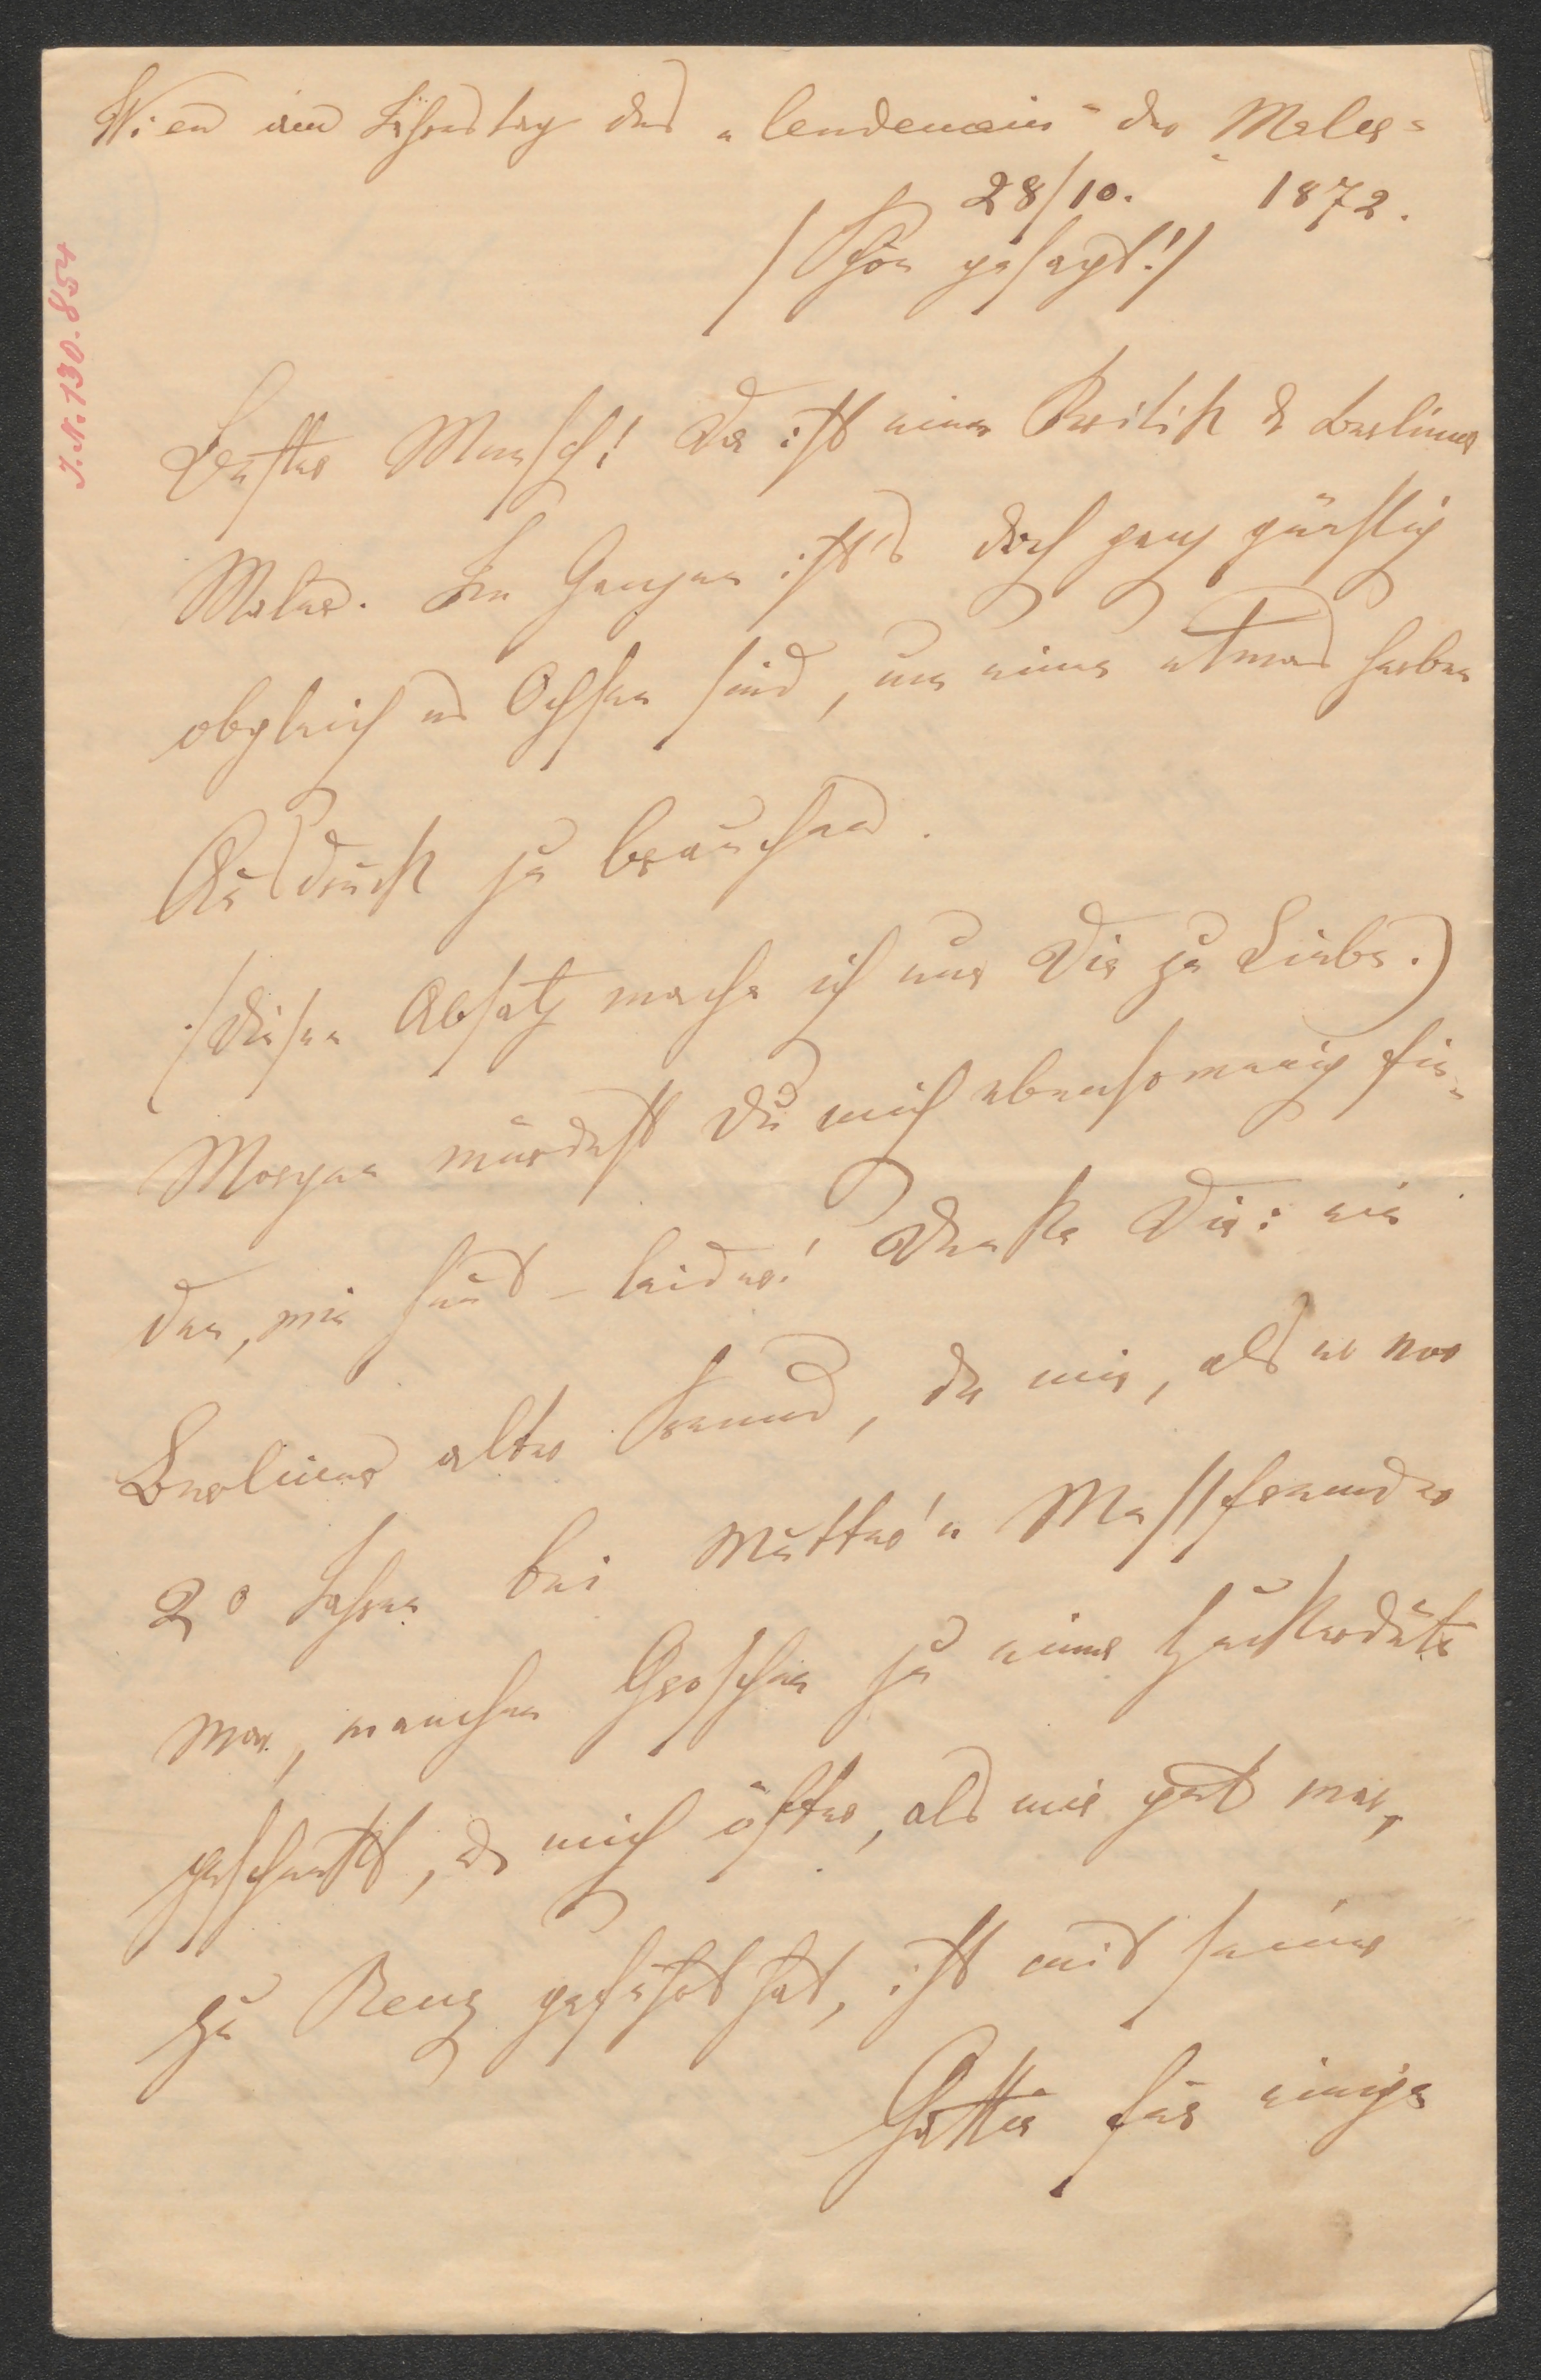 Wien am Jahrestag des „lendemain" der Maler-
28/10. 1872.
/Schön gesagt!/
J.N. 130.854
Bester Mensch! Da ist eine Kritik d Berliner
Maler. Im Ganzen ist's doch ganz günstig
obgleich es Ochsen sind, um einen etwas herben
Ausdruck zu brauchen.
(Diesen Absatz mache ich nur Dir zu Liebe.)
Morgen würdest Du mich ebensowenig fin-
den, wie heut – leider! Denke Dir: ein
Berliner alter Freund, der mir, als er vor
20 Jahren bei Mutter'n Messfremder
war, manchen Groschen zu einer Zuckerdüte
geschenkt, der mich öfter, als mir gut war,
zu Renz geführt hat, ist mit seiner
Gattin für einige